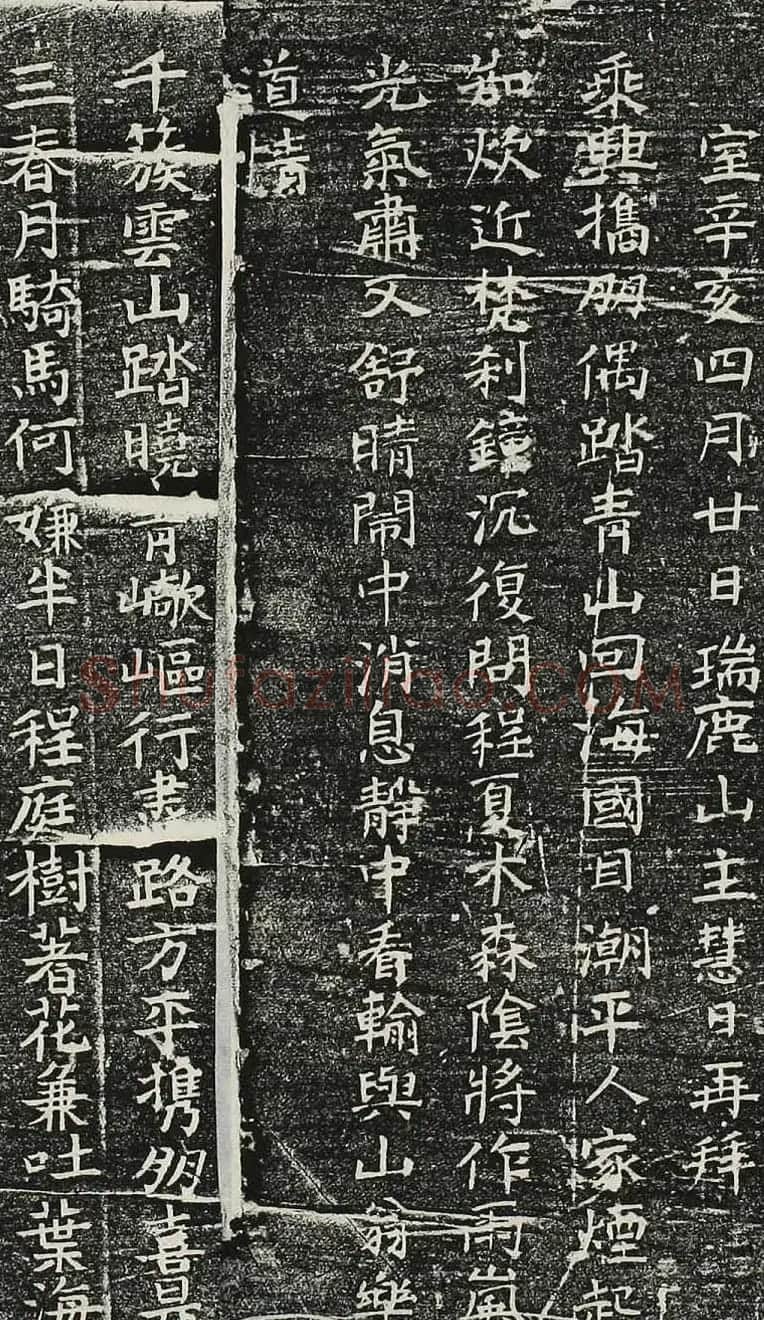 室辛亥四月廿日瑞鹿山主慧日再拜
乘興攜朋偶踏青山回海國目潮平人家煙起
茄炊近梵刹鐘沉復問程夏木森陰將作雨嵐
光氣肅又舒晴鬧中消息靜中看輸與山翁樂
道情
千簇雲山踏曉青巘嶇行盡路方平携朋喜是
三春月騎馬何嫌半日程庭樹著花兼吐葉海
Shufaziliao.COM